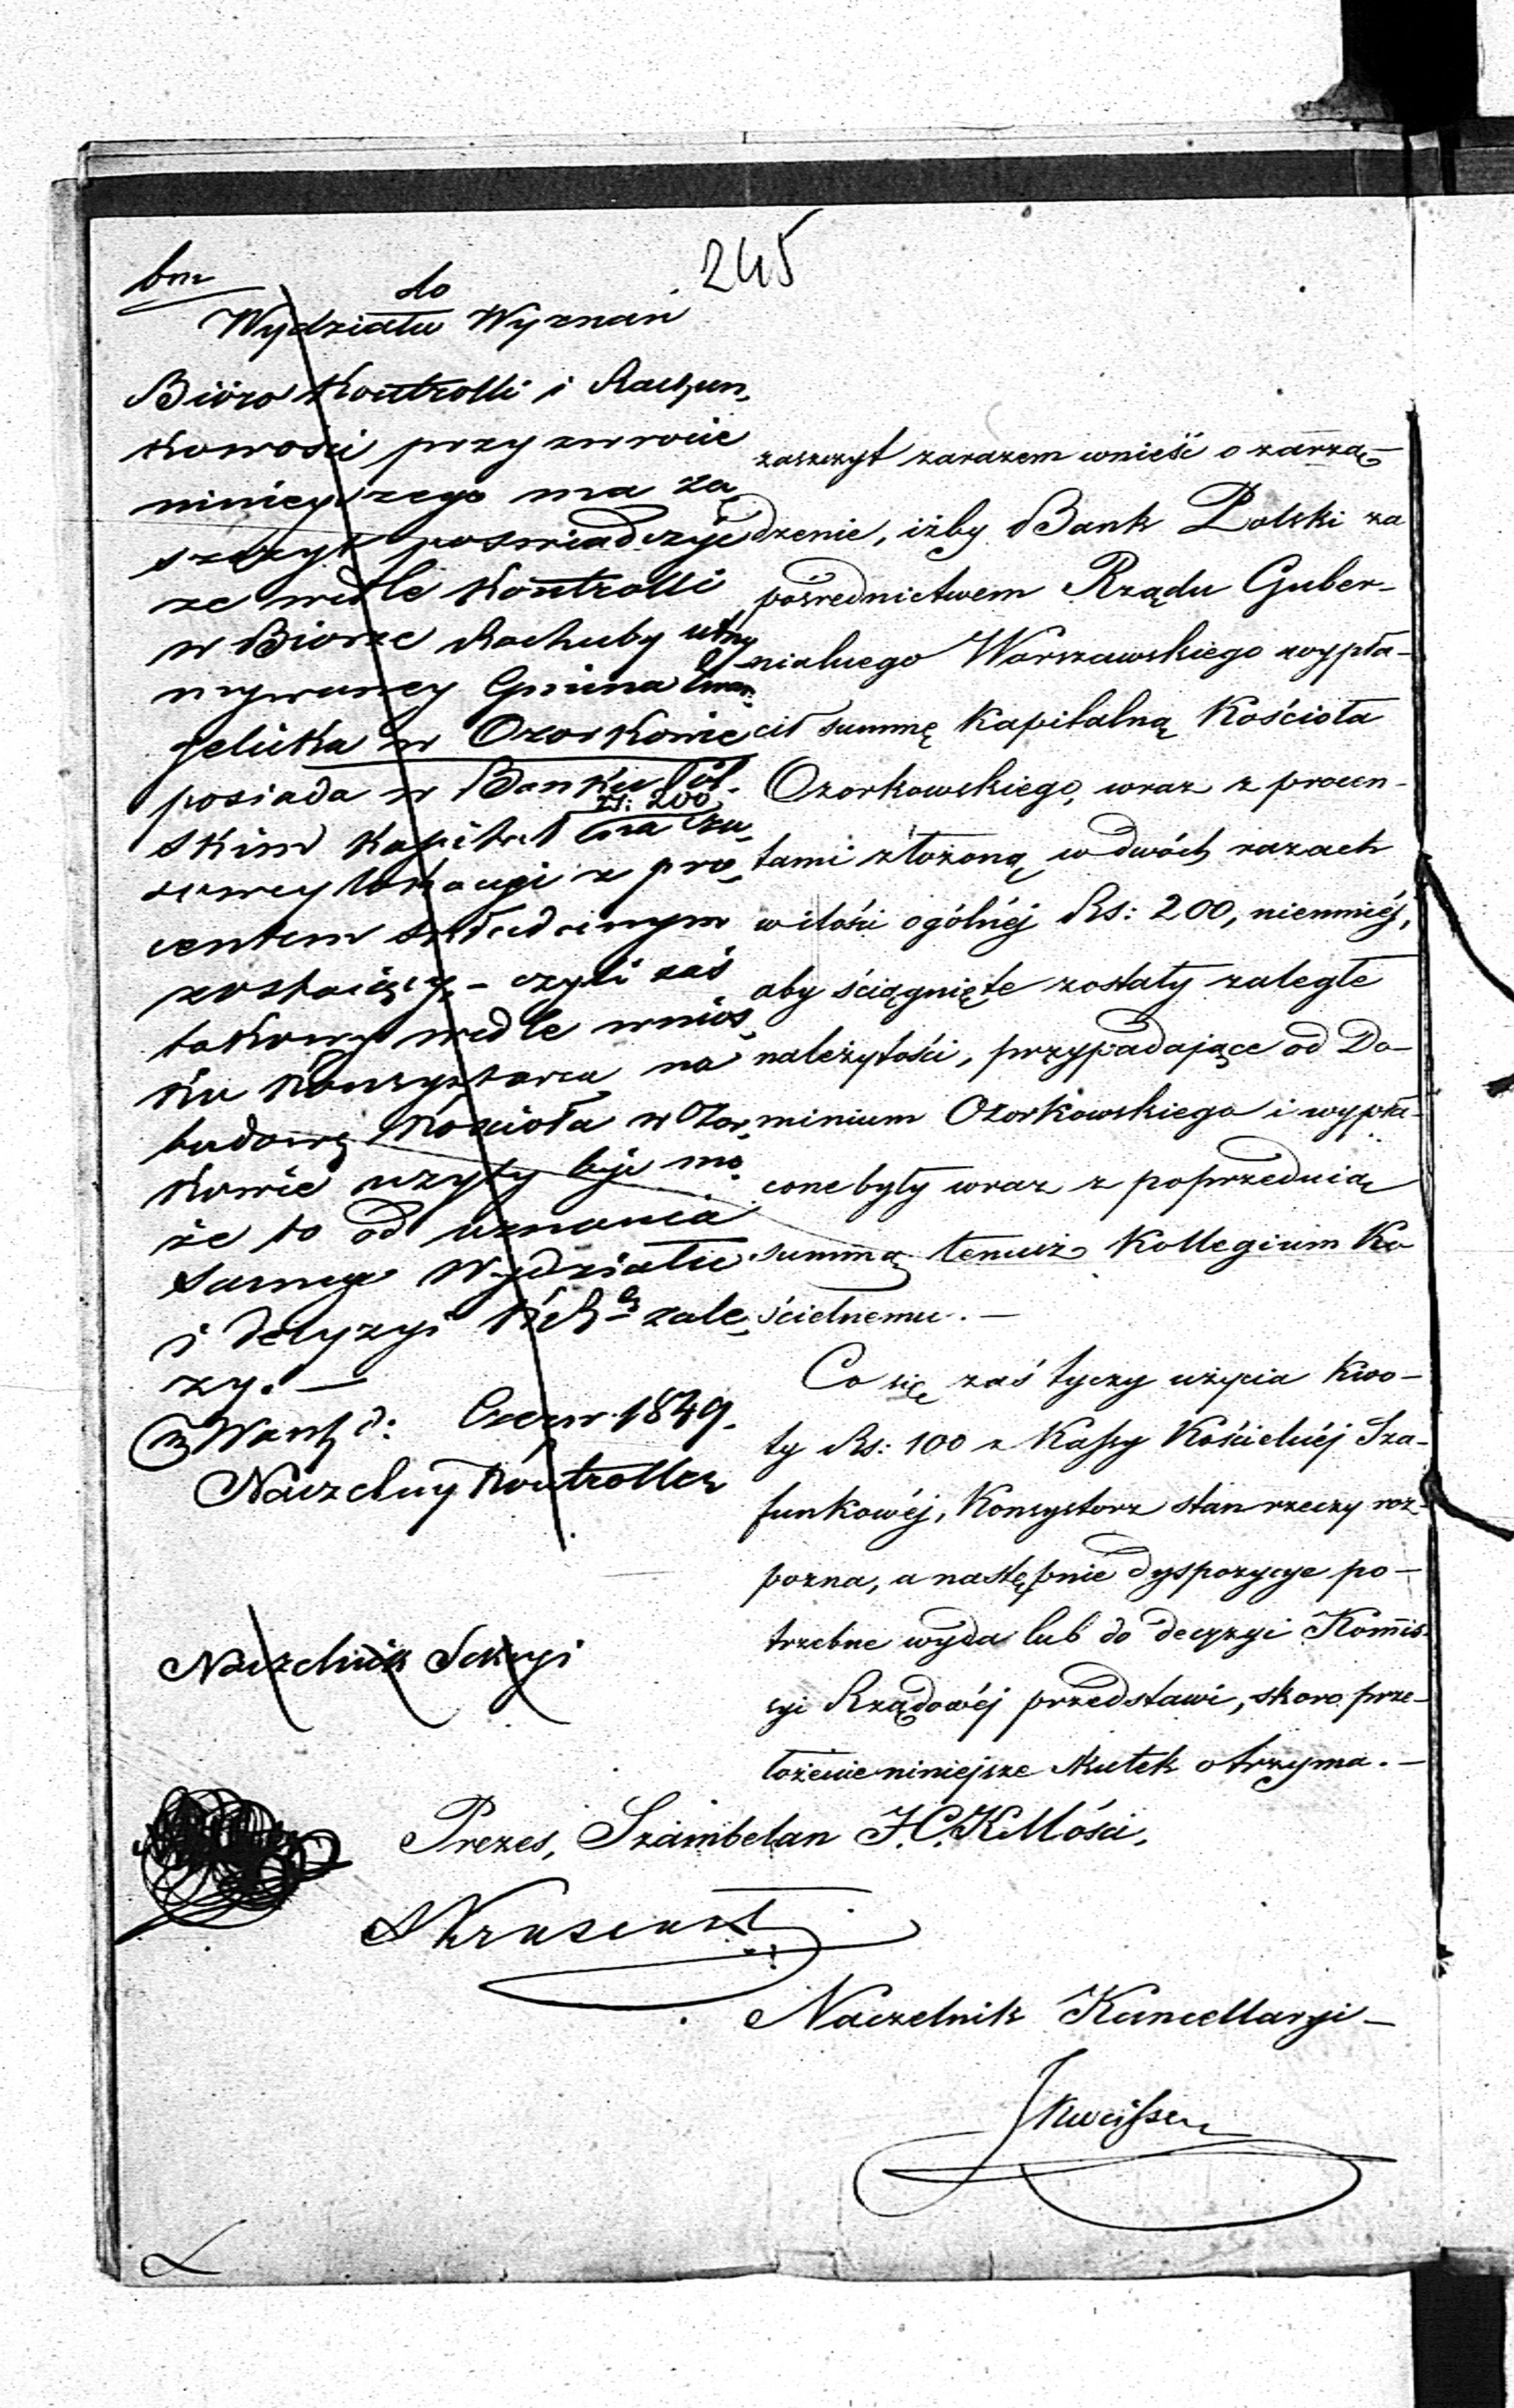 245
bm
do
Wydziału Wyznań
Bióro Kontrolli i Rachun,
kowości przy zwrocie
ninieyszego ma za,
szczyt poswiadczyć
ze wedle Kontrolli
w Biorze Rachuby utrzy
mywaney Gmina Ewan,
gelicka w Ozorkowie
posiada w Banku Pol,
skim Kapitał rs: 200 na
z pro,
centem składanym
zostaiący, - czyli zaś
takowy wedle wnios,
ku Konsystorza na
budowę Kościoła w Ozor,
kowie uzyty być mo,
że to od uznania
samego Wydziału
i decyzyi zale,
zy. —
w Warsz d: Czerw. 1849.
Naczelny Kontroller
Naczelnik Sekcyi
zaszczyt zarazem wnieść o zarzą-
dzenie, iżby Bank Polski za
pośrednictwem Rządu Guber-
nialnego Warszawskiego wypła-
cił summę Kapitalną Kościoła
Ozorkowskiego, wraz z procen-
tami złożoną w dwóch razach
w ilości ogólnéj Rs: 200, niemniéj,
aby ściągnięte zostały zaległe
należytości, przypadające od Do-
minium Ozorkowskiego i wypła-
cone były wraz z poprzednią
summą temuż Kollegium Ko
ścielnemu. —
Co się zaś tyczy użycia kwo-
ty Rs: 100 z Kassy Kościelnéj Sza-
funkowéj, Konsystorz stan rzeczy roz-
pozna, a następnie dyspozycye po-
trzebne wyda lub do decyzyi Kommis-
syi Rządowéj przedstawi, skoro prze-
łożenie niniejsze skutek otrzyma. —
Prezes, Szambelan J.C.K. Mości,
Naczelnik Kancellaryi —